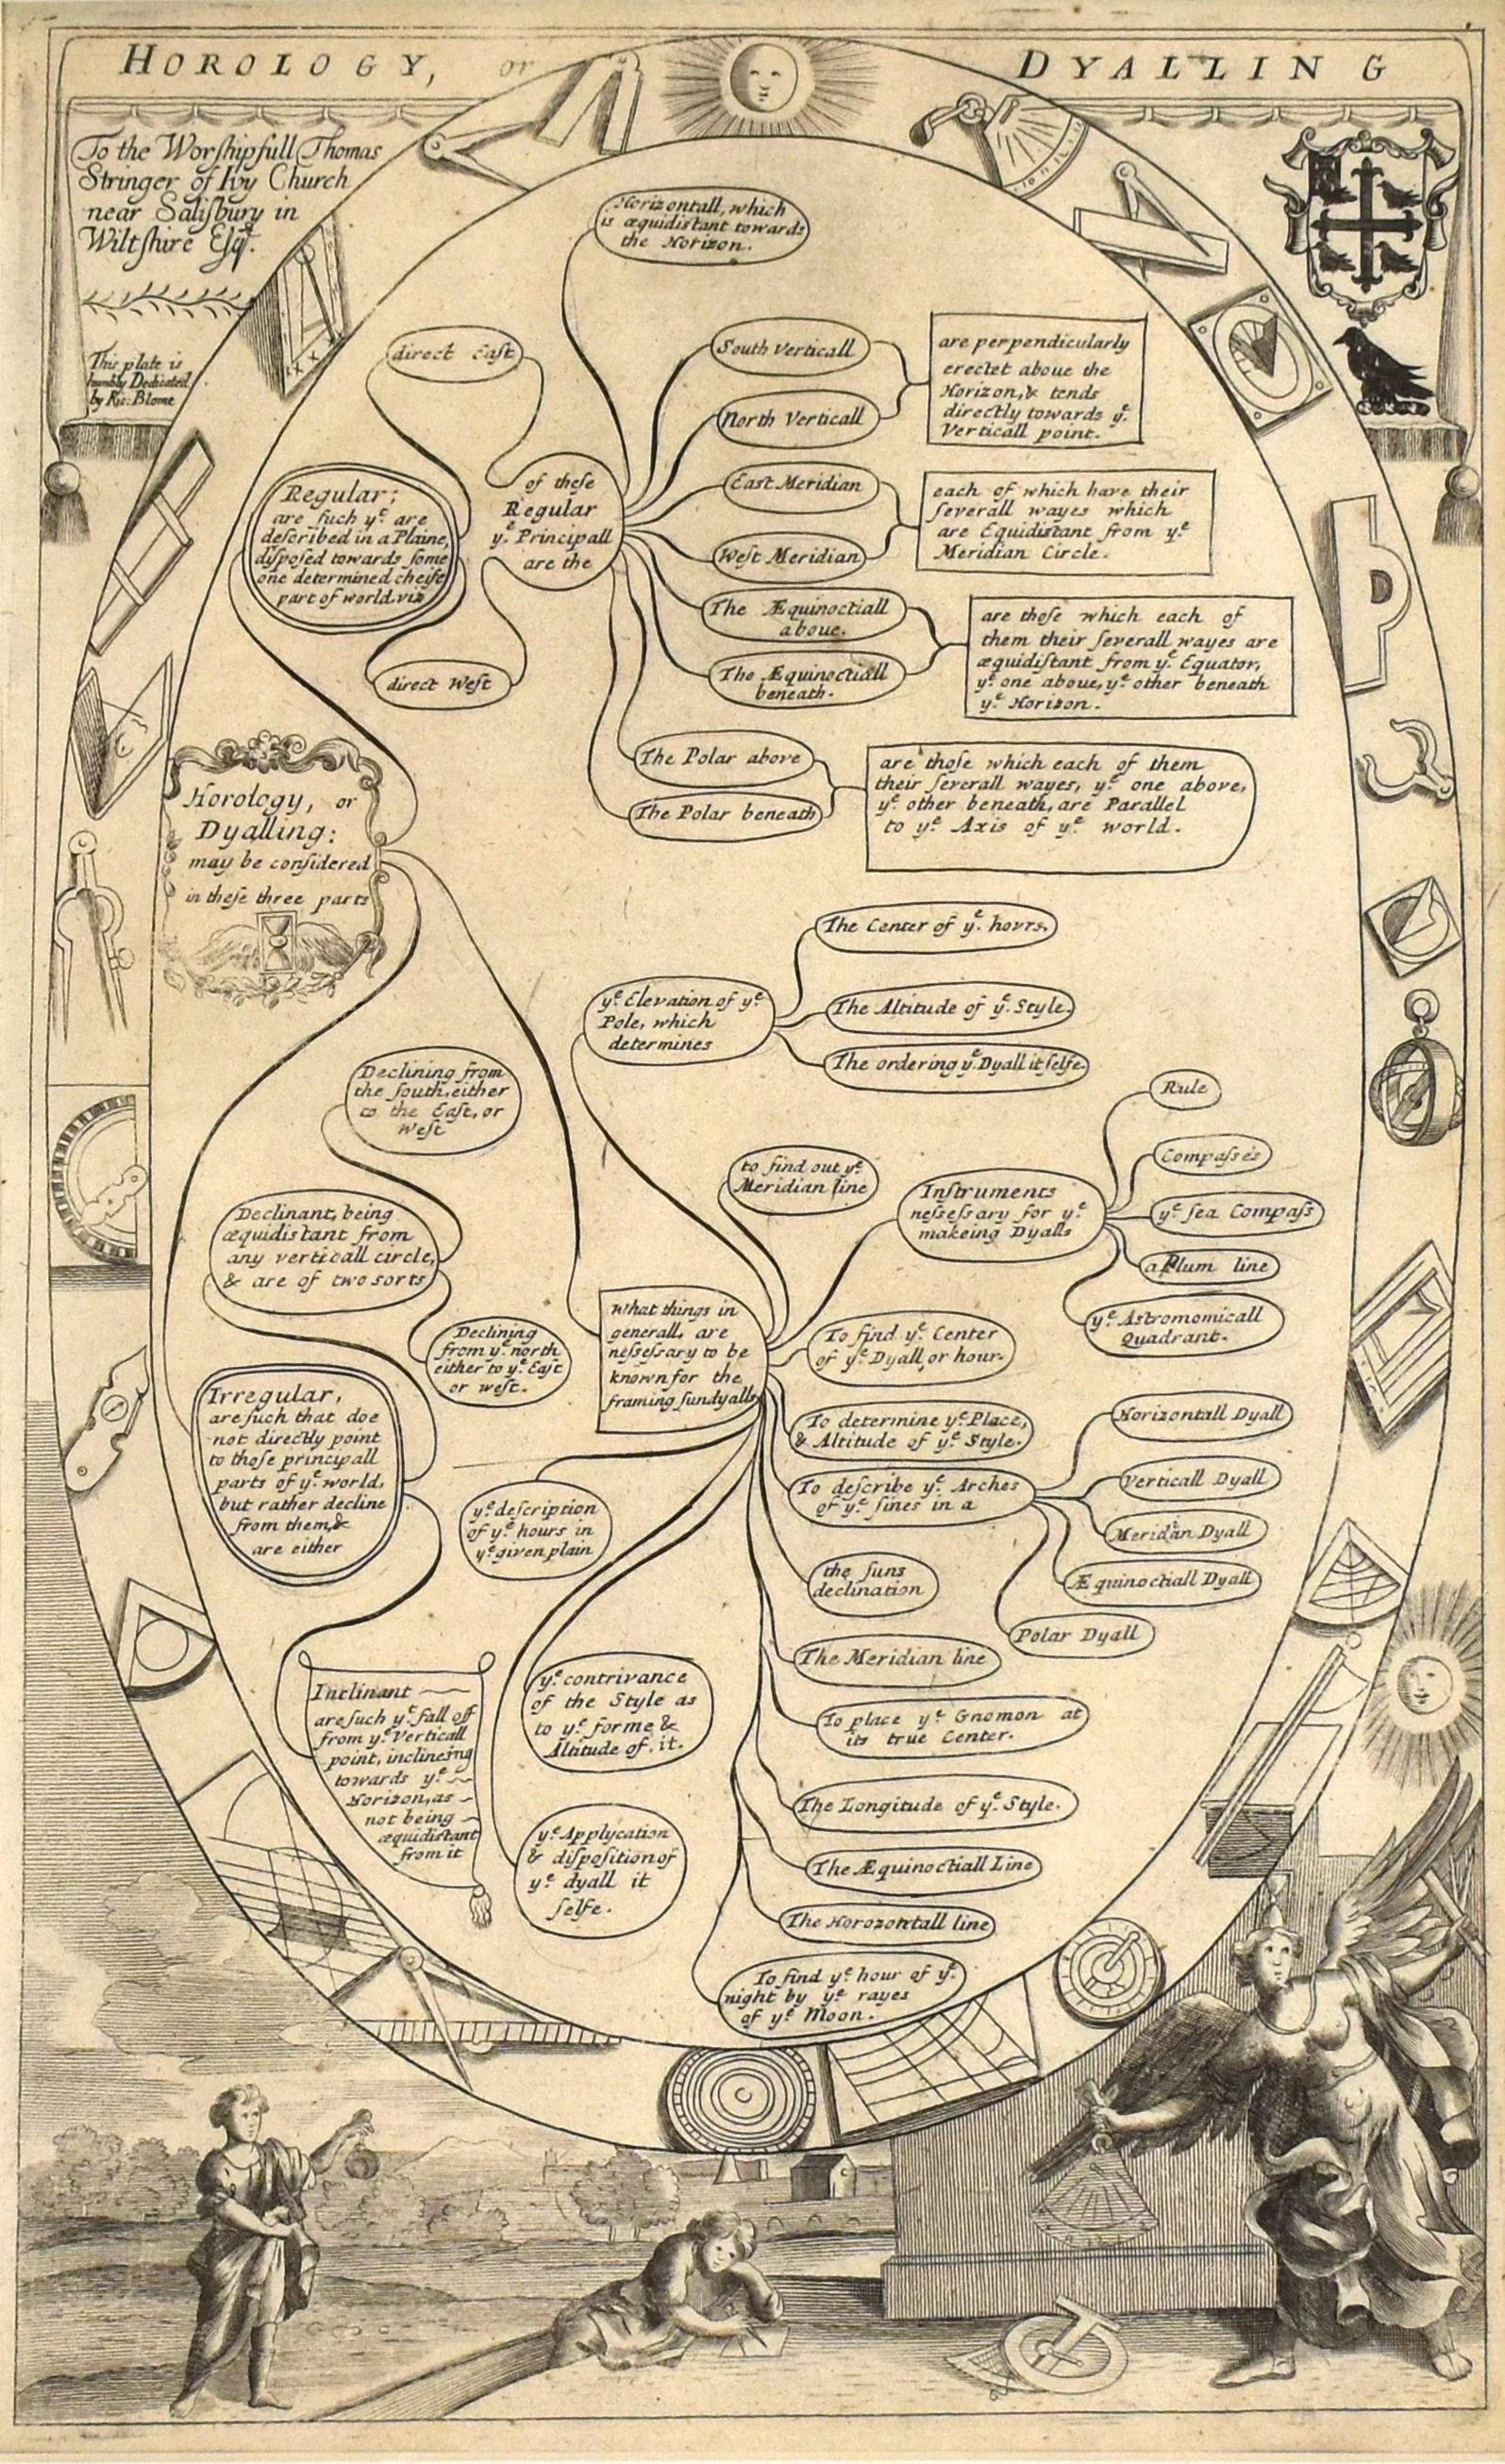 HOROLOGY, or DYALLING
To the Worſhipfull Thomas
Stringer of Ivy Church
near Saliſbury in
Wiltſhire Eſqr.
This plate is
humbly Dedicated
by Ric: Blome
Horizontall, which
is æquidistant towards
the Horizon.
direct Eaſt
South Verticall
North Verticall
are perpendicularly
erectet aboue the
Horizon, & tends
directly towards ye.
Verticall point.
Regular;
are ſuch ye. are
deſcribed in a Plaine,
diſpoſed towards ſome
one determined cheife
part of world. viz
of theſe
Regular
ye. Principall
are the
East Meridian
Weſt Meridian
each of which have their
ſeverall wayes which
are Equidistant from ye.
Meridian Circle.
direct Weſt
The Æquinoctiall
aboue.
The Æquinoctiall
beneath.
are thoſe which each of
them their ſeverall wayes are
æquidiſtant from ye. Equator,
ye. one aboue, ye. other beneath
ye. Horizon.
The Polar above
The Polar beneath
are thoſe which each of them
their ſeverall wayes, ye. one above,
ye. other beneath, are Parallel
to ye. Axis of ye. world.
Horology, or
Dyalling:
may be conſidered
in theſe three parts
ye. Elevation of ye.
Pole, which
determines
The Center of ye. hovrs.
The Altitude of ye. Style.
The ordering ye. Dyall it ſelfe.
Declining from
the ſouth, either
to the Eaſt, or
Weſt
Declinant, being
æquidistant from
any verticall circle,
& are of two sorts
Declining
from ye. north
either to ye. Eaſt
or weſt.
to find out ye.
Meridian line
Inſtruments
neſeſsary for ye.
makeing Dyalls
Rule
Compaſses
ye. ſea Compaſs
a Plum line
ye. Astromomicall
Quadrant.
What things in
generall, are
neſeſsary to be
known for the
framing ſundyalls
To find ye. Center
of ye. Dyall, or hour.
To determine ye. Place,
& Altitude of ye. Style.
To deſcribe ye. Arches
of ye. ſines in a
Horizontall Dyall
Verticall Dyall
Meridian Dyall
Æquinoctiall Dyall
Polar Dyall
Irregular,
are ſuch that doe
not directly point
to thoſe principall
parts of ye. world,
but rather decline
from them, &
are either
ye. deſcription
of ye. hours in
ye. given plain
the ſuns
declination
The Meridian line
To place ye. Gnomon at
its true Center.
The Longitude of ye. Style.
The Æquinoctiall Line
The Horozontall line
To find ye. hour of ye.
night by ye. rayes
of ye. Moon.
Inclinant
are ſuch ye. fall off
from ye. Verticall
point, inclineing
towards ye.
Horizon, as
not being
æquidistant
from it
ye. contrivance
of the Style as
to ye. forme &
Altitude of it.
ye. Applycation
& diſpoſition of
ye. dyall it
ſelfe.